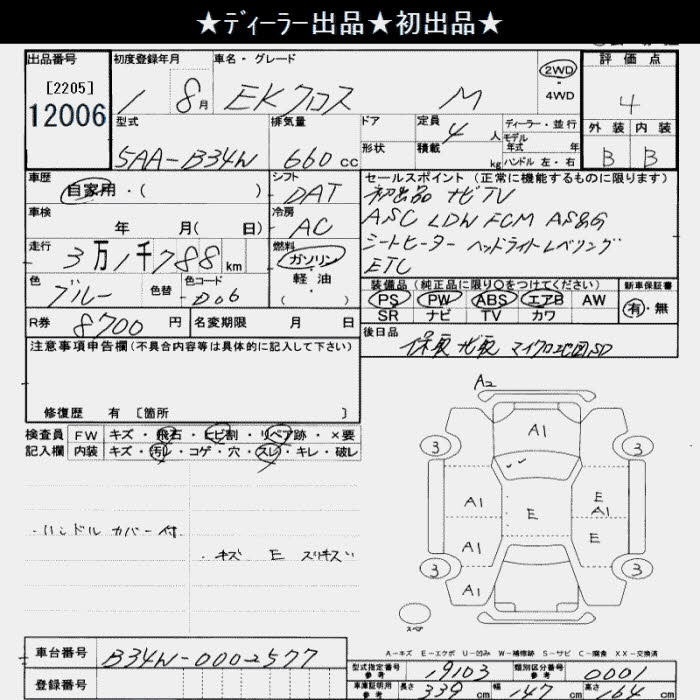 ★ディーラー出品★初出品★
出品番号 初度登録年月 車名・グレード 評価点
[2205] 12006 1 8月 EKクロス M 2WD・4WD 4
型式 排気量 ドア 定員 4人 ディーラー・並行 外装 内装
形状 積載 kg モデル年式 年 ハンドル 左・右
5AA-B34W 660cc B B
車歴 シフト セールスポイント(正常に機能するものに限ります)
自家用・( ) DAT 初出品 ナビTV
車検 冷房 ASC LDW FCM AS&G
年 月( 日) AC シートヒーター ヘッドライトレベリング
走行 燃料 ETC
3万1千788km ガソリン・軽油・( )
装備品(純正品に限り○をつけてください) 新車保証書
色 色替 色コード PS PW ABS エアB AW 有・無
ブルー D06 SR ナビ TV カワ
R券 8700円 名変期限 月 日 後日品
保取 ナビ取 マイクロ地図SD
注意事項申告欄(不具合内容等は具体的に記入して下さい)
修復歴 有 [箇所 ]
検査員 FW キズ・飛石・ヒビ割・リペア跡・×要
記入欄 内装 キズ・汚レ・コゲ・穴・スレ・キレ・破レ
・ハンドルカバー付
・キズ E スリキズ
A2
A1
3 3
A1 E E A1
A1 E
3 3
A1
スペア
A－キズ E－エクボ U－凹み W－補修跡 S－サビ C－腐食 XX－交換済
車台番号 B34W-0002577
登録番号
型式指定番号 参考 19103 類別区分番号 参考 0001
車庫証明用 参考 長さ 339cm 幅 147cm 高さ 164cm